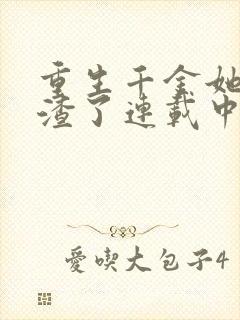 重生千金她
渣了連載中
愛喫大包子4